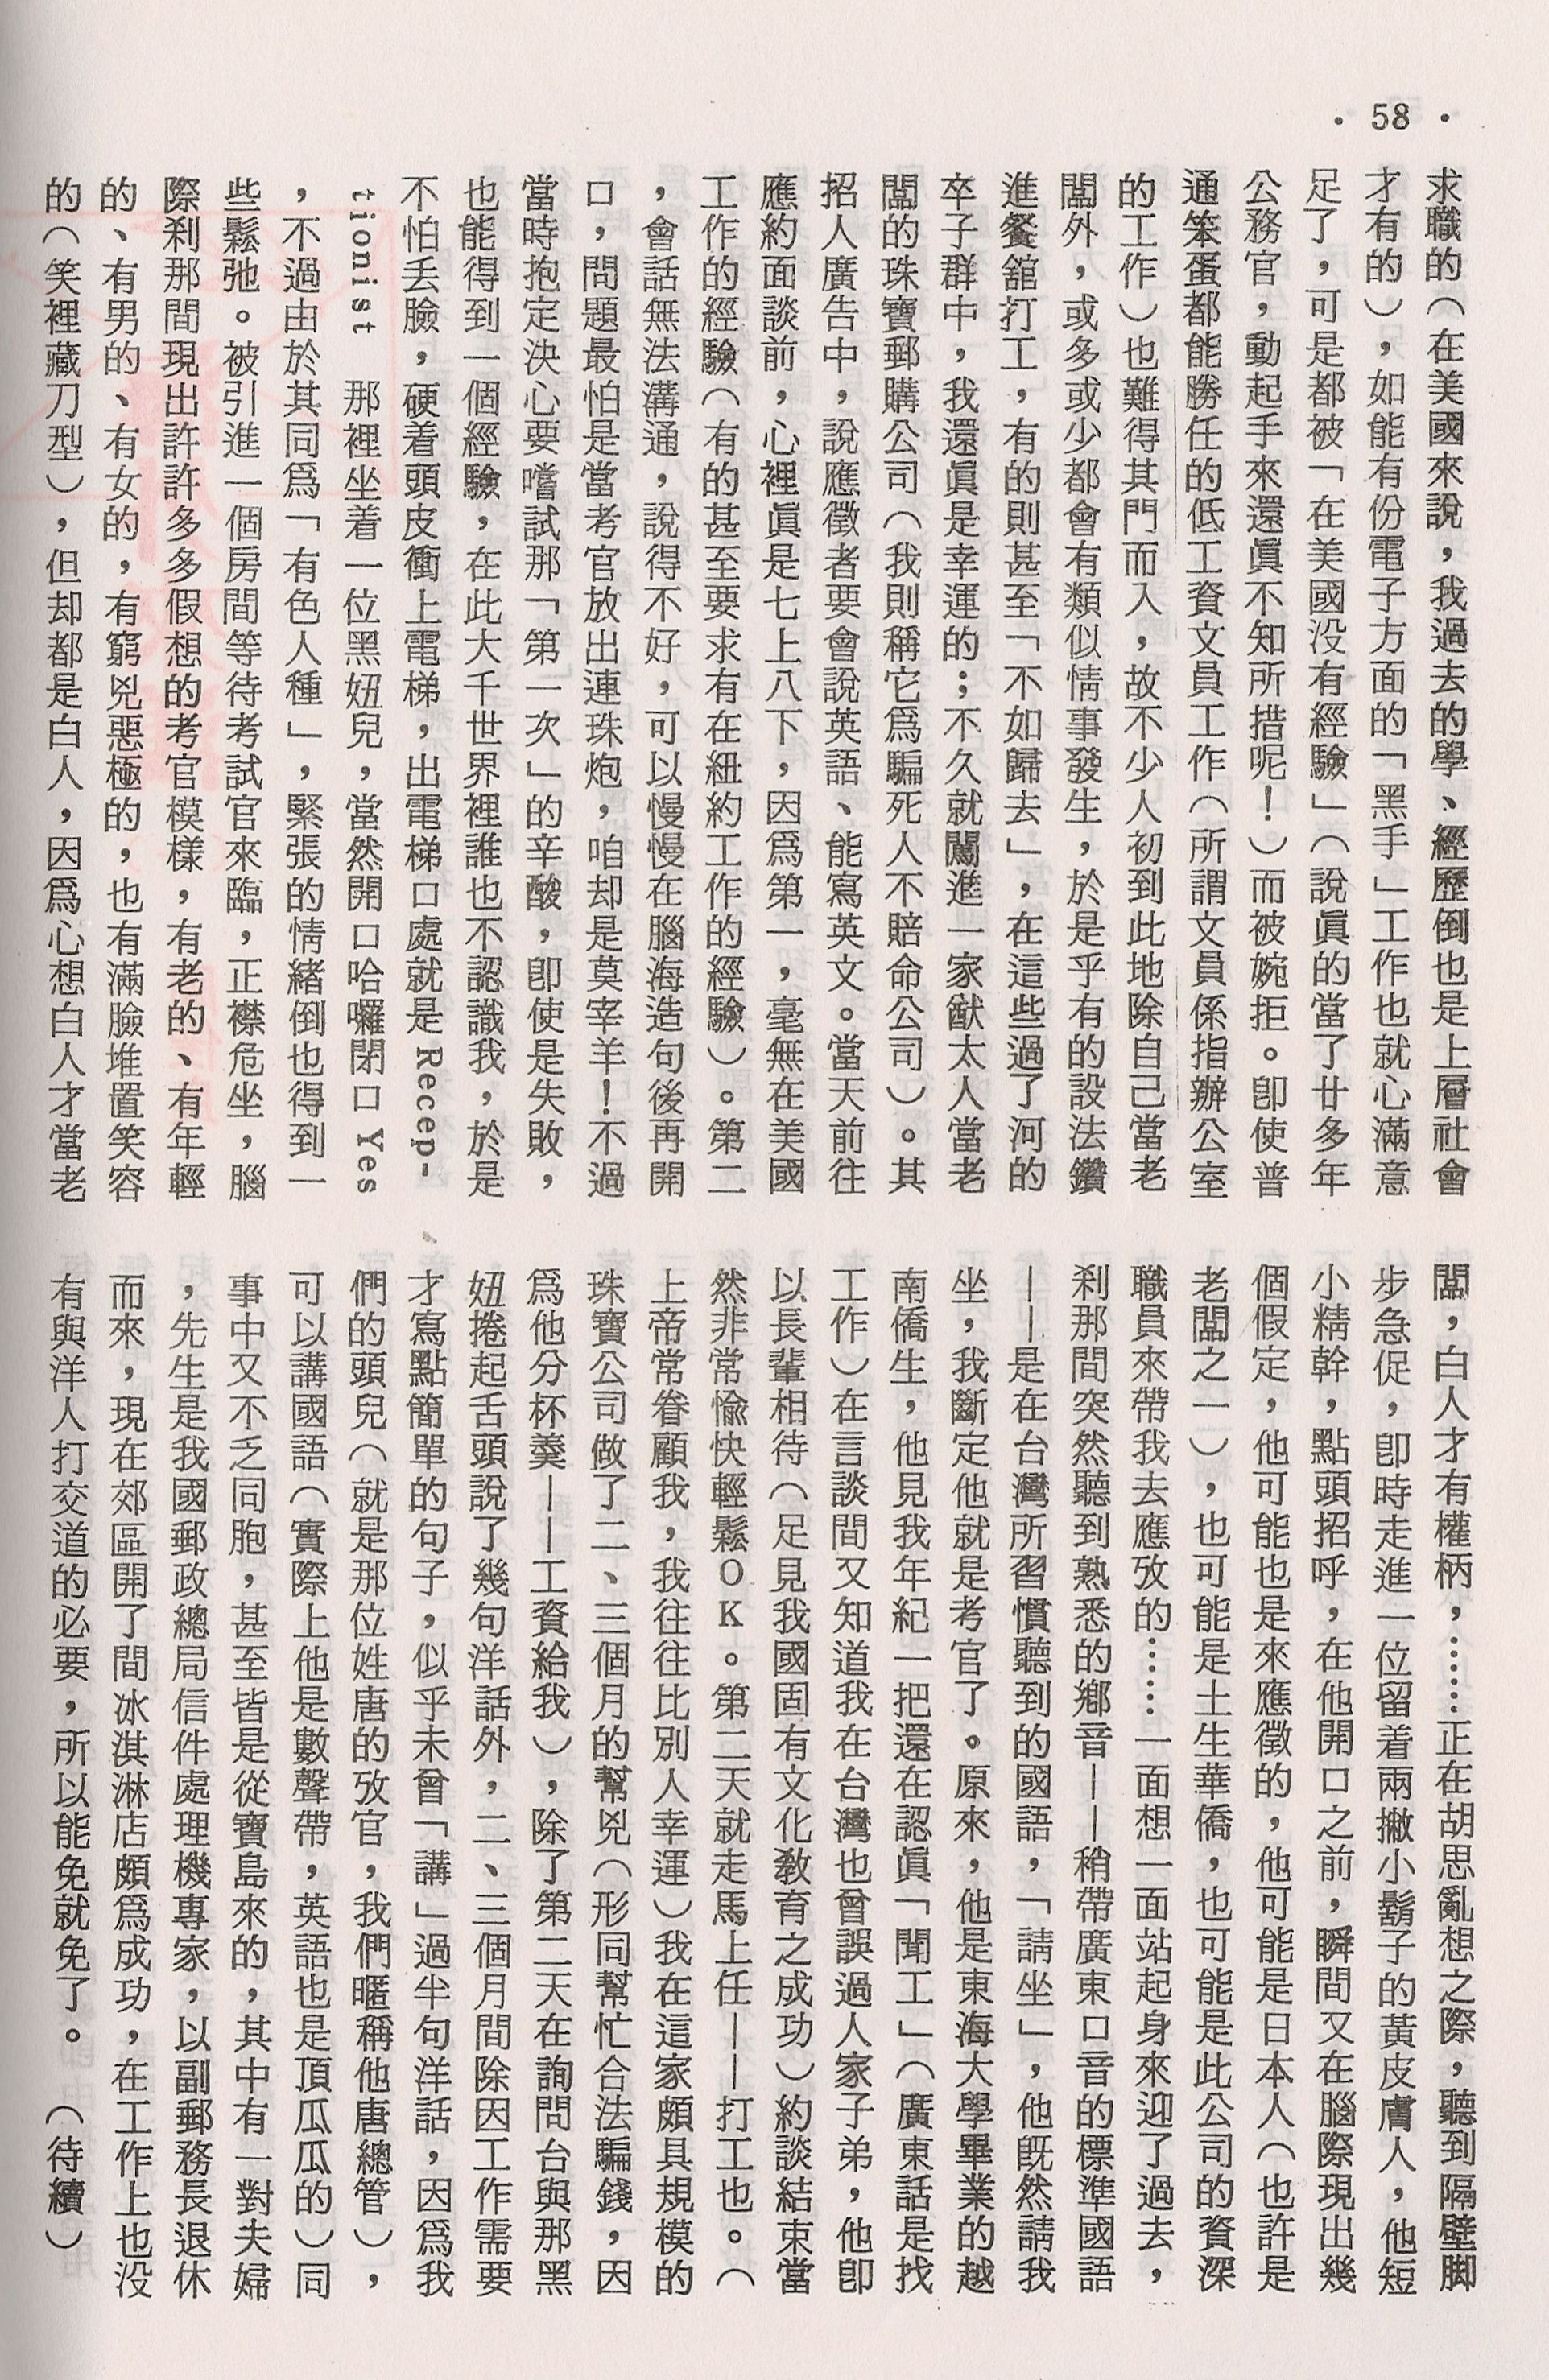 · 58 ·
求職的（在美國來說，我過去的學、經歷倒也是上層社會
才有的），如能有份電子方面的「黑手」工作也就心滿意
足了，可是都被「在美國没有經驗」（說眞的當了廿多年
公務官，動起手來還眞不知所措呢！）而被婉拒。卽使普
通笨蛋都能勝任的低工資文員工作（所謂文員係指辦公室
的工作）也難得其門而入，故不少人初到此地除自己當老
闆外，或多或少都會有類似情事發生，於是乎有的設法鑽
進餐舘打工，有的則甚至「不如歸去」，在這些過了河的
卒子群中，我還眞是幸運的；不久就闖進一家猷太人當老
闆的珠寶郵購公司（我則稱它爲騙死人不賠命公司）。其
招人廣告中，說應徵者要會說英語、能寫英文。當天前往
應約面談前，心裡眞是七上八下，因爲第一，毫無在美國
工作的經驗（有的甚至要求有在紐約工作的經驗）。第二
，會話無法溝通，說得不好，可以慢慢在腦海造句後再開
口，問題最怕是當考官放出連珠炮，咱却是莫宰羊！不過
當時抱定決心要嚐試那「第一次」的辛酸，卽使是失敗，
也能得到一個經驗，在此大千世界裡誰也不認識我，於是
不怕丢臉，硬着頭皮衝上電梯，出電梯口處就是 Recep-
tionist 那裡坐着一位黑妞兒，當然開口哈囉閉口 Yes
，不過由於其同爲「有色人種」，緊張的情緒倒也得到一
些鬆弛。被引進一個房間等待考試官來臨，正襟危坐，腦
際刹那間現出許許多多假想的考官模樣，有老的、有年輕
的、有男的、有女的，有窮兇惡極的，也有滿臉堆置笑容
的（笑裡藏刀型），但却都是白人，因爲心想白人才當老
闆，白人才有權柄，……正在胡思亂想之際，聽到隔壁脚
步急促，卽時走進一位留着兩撇小鬍子的黃皮膚人，他短
小精幹，點頭招呼，在他開口之前，瞬間又在腦際現出幾
個假定，他可能也是來應徵的，他可能是日本人（也許是
老闆之一），也可能是土生華僑，也可能是此公司的資深
職員來帶我去應攷的……一面想一面站起身來迎了過去，
刹那間突然聽到熟悉的鄉音——稍帶廣東口音的標準國語
——是在台灣所習慣聽到的國語，「請坐」，他旣然請我
坐，我斷定他就是考官了。原來，他是東海大學畢業的越
南僑生，他見我年紀一把還在認眞「聞工」（廣東話是找
工作）在言談間又知道我在台灣也曾誤過人家子弟，他卽
以長輩相待（足見我國固有文化敎育之成功）約談結束當
然非常愉快輕鬆OK。第二天就走馬上任——打工也。（
上帝常眷顧我，我往往比別人幸運）我在這家頗具規模的
珠寶公司做了二、三個月的幫兇（形同幫忙合法騙錢，因
爲他分杯羹——工資給我），除了第二天在詢問台與那黑
妞捲起舌頭說了幾句洋話外，二、三個月間除因工作需要
才寫點簡單的句子，似乎未曾「講」過半句洋話，因爲我
們的頭兒（就是那位姓唐的攷官，我們暱稱他唐總管），
可以講國語（實際上他是數聲帶，英語也是頂瓜瓜的）同
事中又不乏同胞，甚至皆是從寶島來的，其中有一對夫婦
，先生是我國郵政總局信件處理機專家，以副郵務長退休
而來，現在郊區開了間冰淇淋店頗爲成功，在工作上也没
有與洋人打交道的必要，所以能免就免了。（待續）